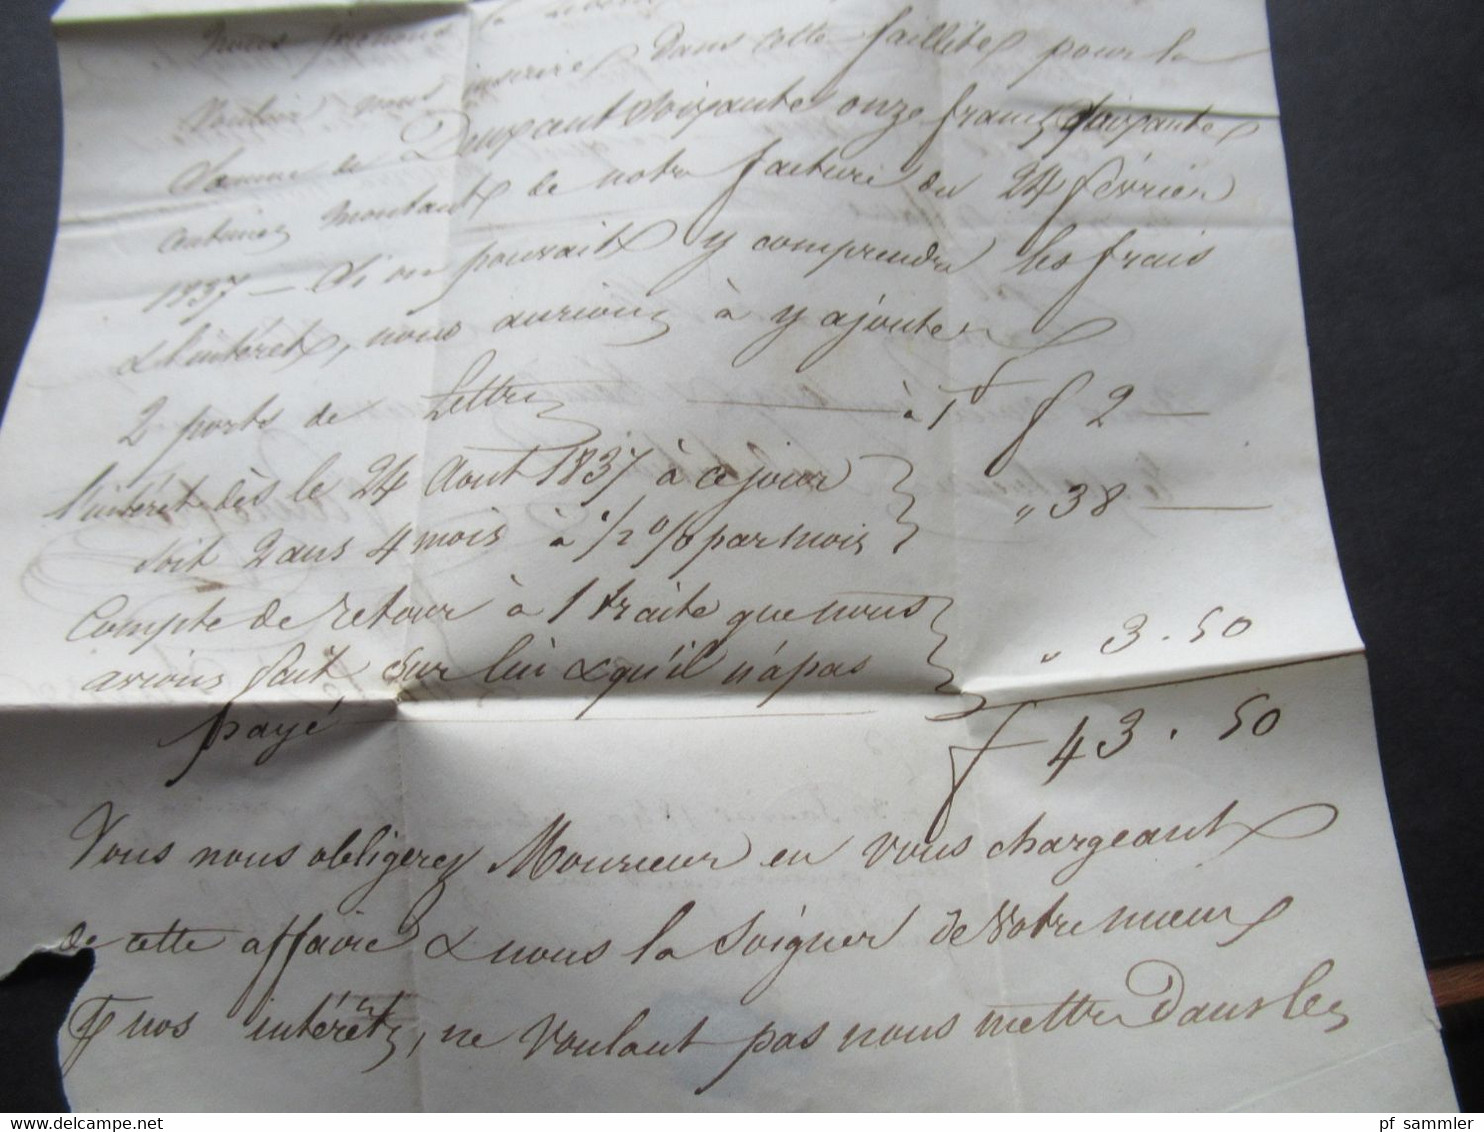 Nous prions
Vouloir nous inscrire dans cette faillite pour la
Somme de Deux cent Soixante onze francs Soixante
centimes montant de notre facture du 24 février
1837 — Si on pouvait y comprendre les frais
& l'intérêt, nous aurions à y ajouter
2 ports de Lettres — à 1 f 2 —
l'intérêt dès le 24 Aout 1837 à ce jour
soit 2 ans 4 mois à 1/2 % par mois } „ 38 —
Compte de retour à 1 traite que nous
avions fait sur lui & qu'il n'a pas } „ 3 . 50
payé
f 43 . 50
Vous nous obligerez Monsieur en vous chargeant
de cette affaire & nous la Soigner de votre mieux
nos intérêts, ne voulant pas nous mettre dans les
delcampe.net
pf sammler